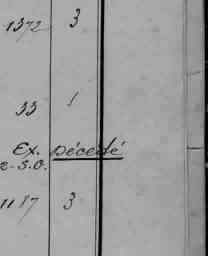 1372 3
33 1
Ex. Décédé
2-S.O.
1117 3